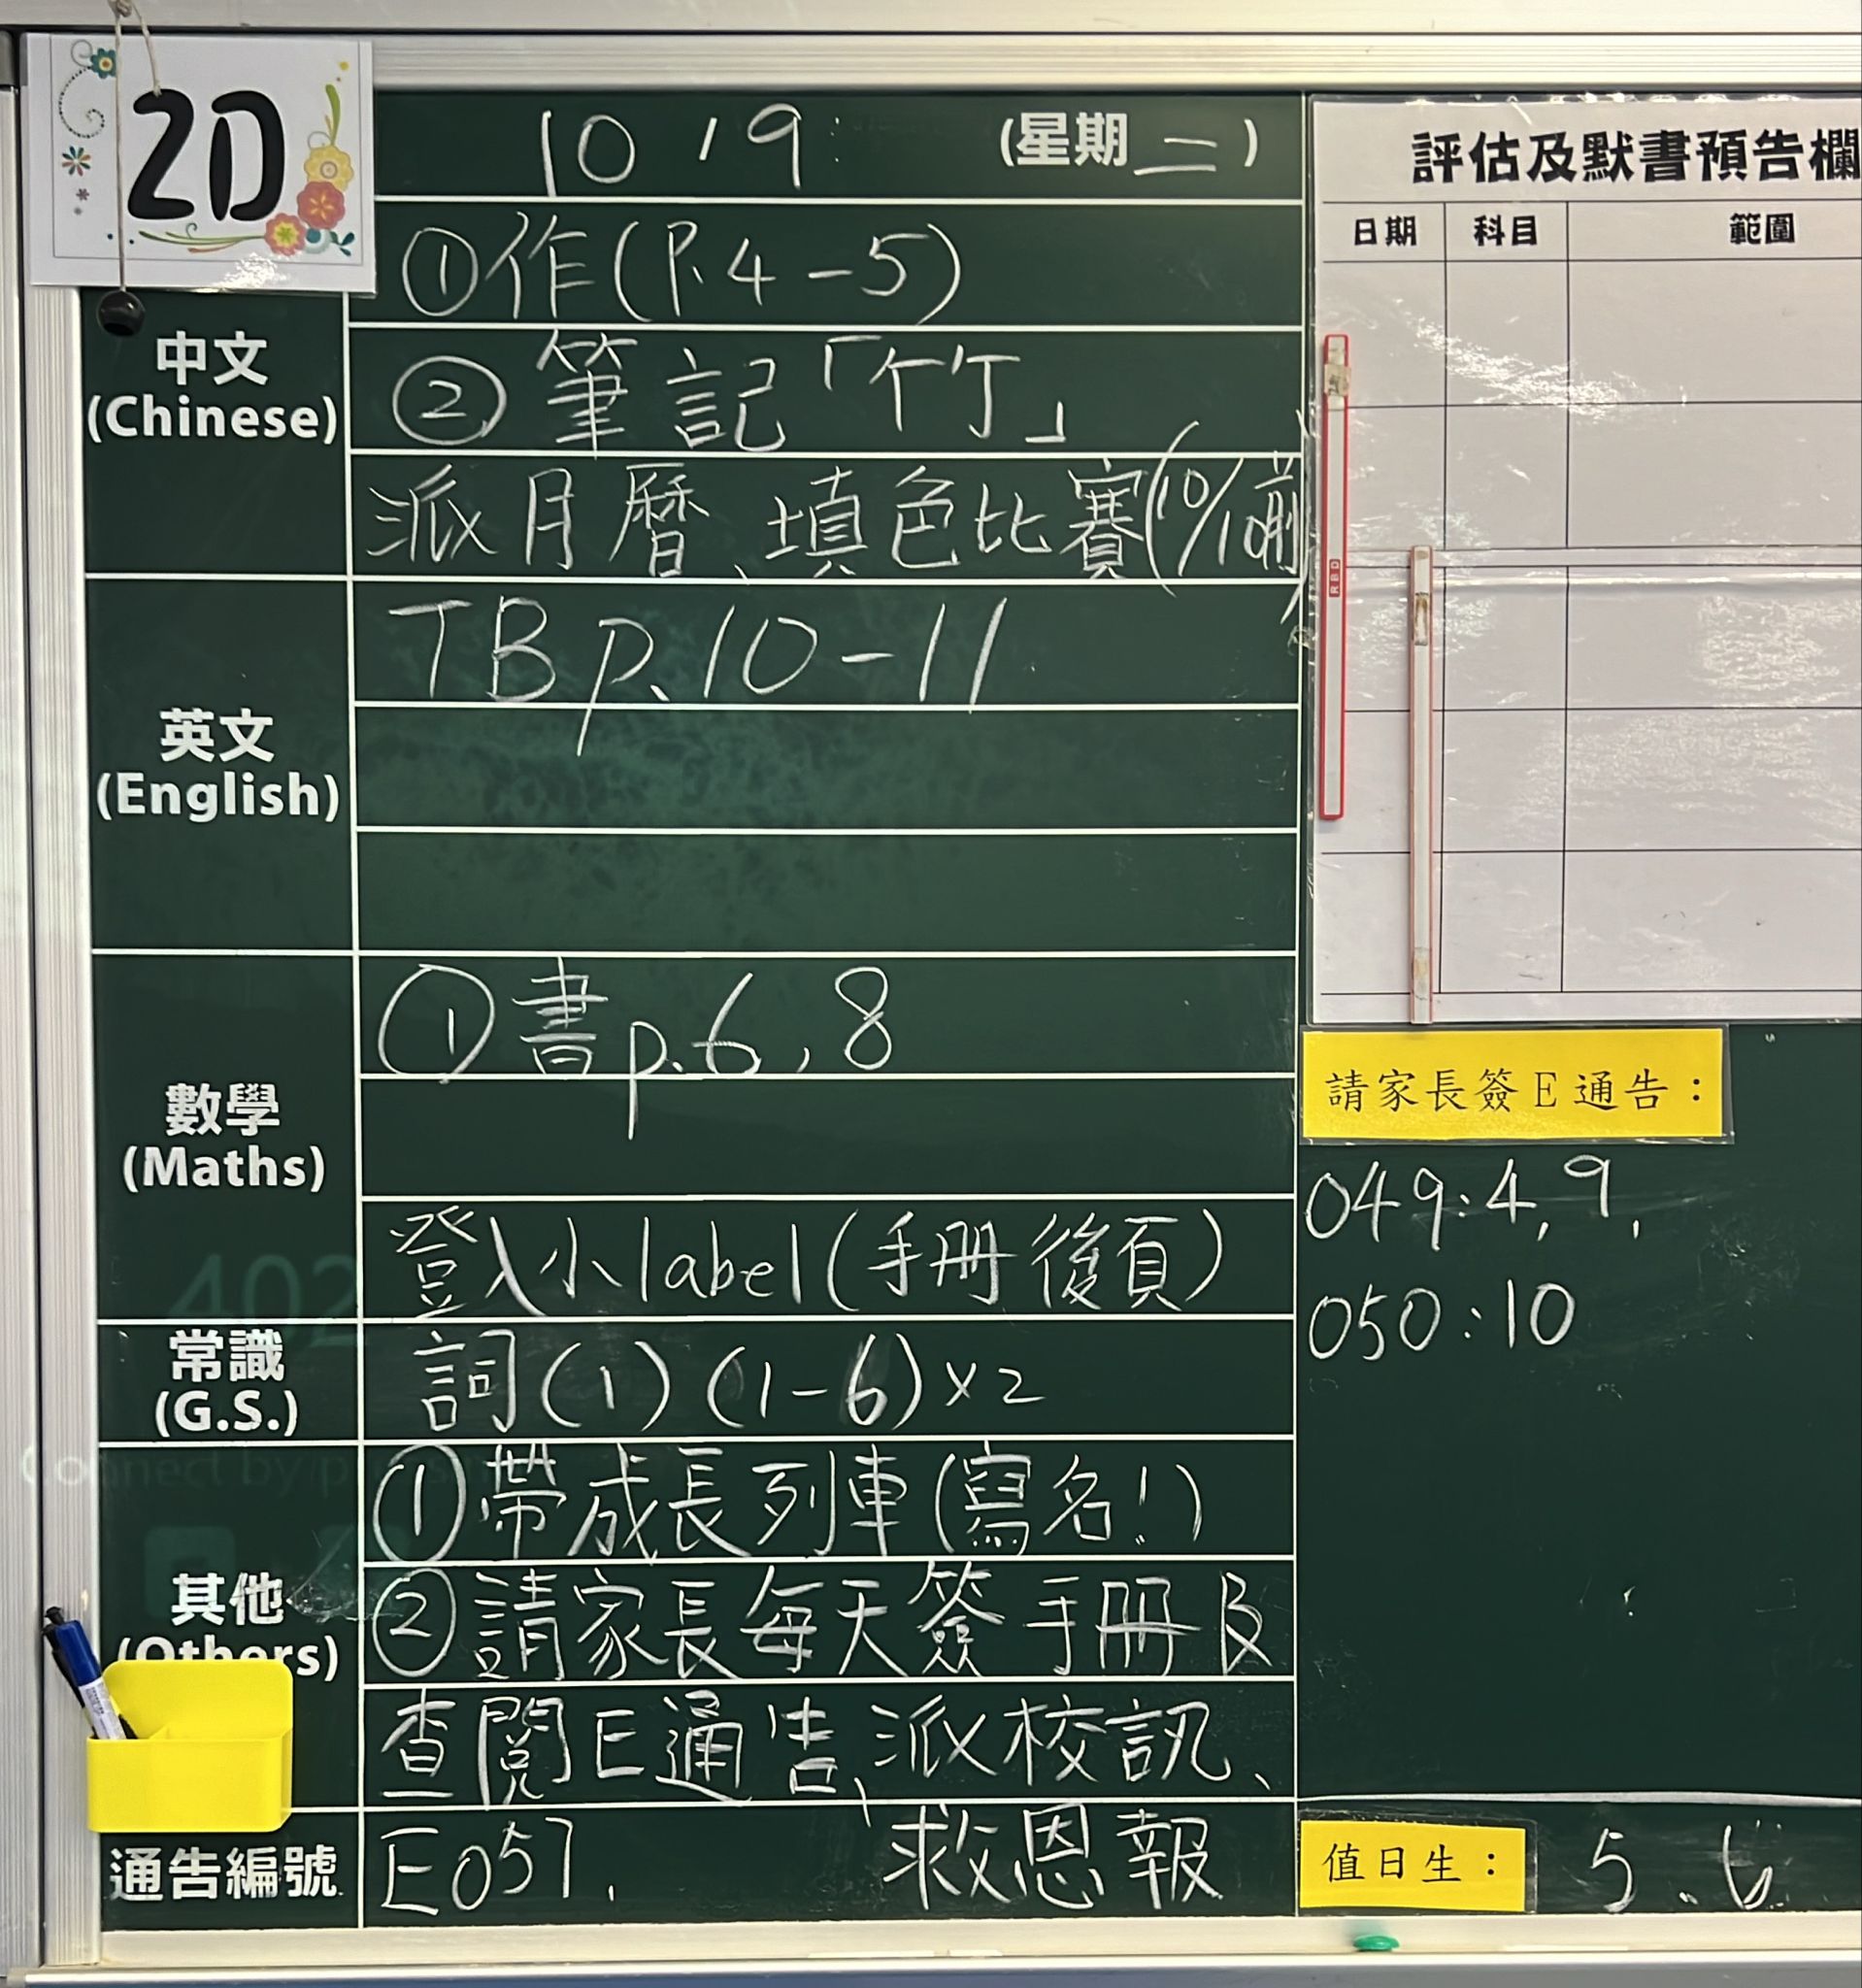 2D
10/9 (星期二)
中文
(Chinese)
①作(P.4-5)
②筆記「竹」
派月曆、填色比賽(10/1前)
英文
(English)
TB p.10-11
數學
(Maths)
①書p.6,8
登入小label(手冊後頁)
常識
(G.S.)
詞(1)(1-6)x2
其他
(Others)
①帶成長列車(寫名!)
②請家長每天簽手冊及
查閱E通告、派校訊、
救恩報
通告編號
E057.
評估及默書預告欄
日期 科目 範圍
RBD
請家長簽E通告:
049:4,9,
050:10
值日生: 5、6
402